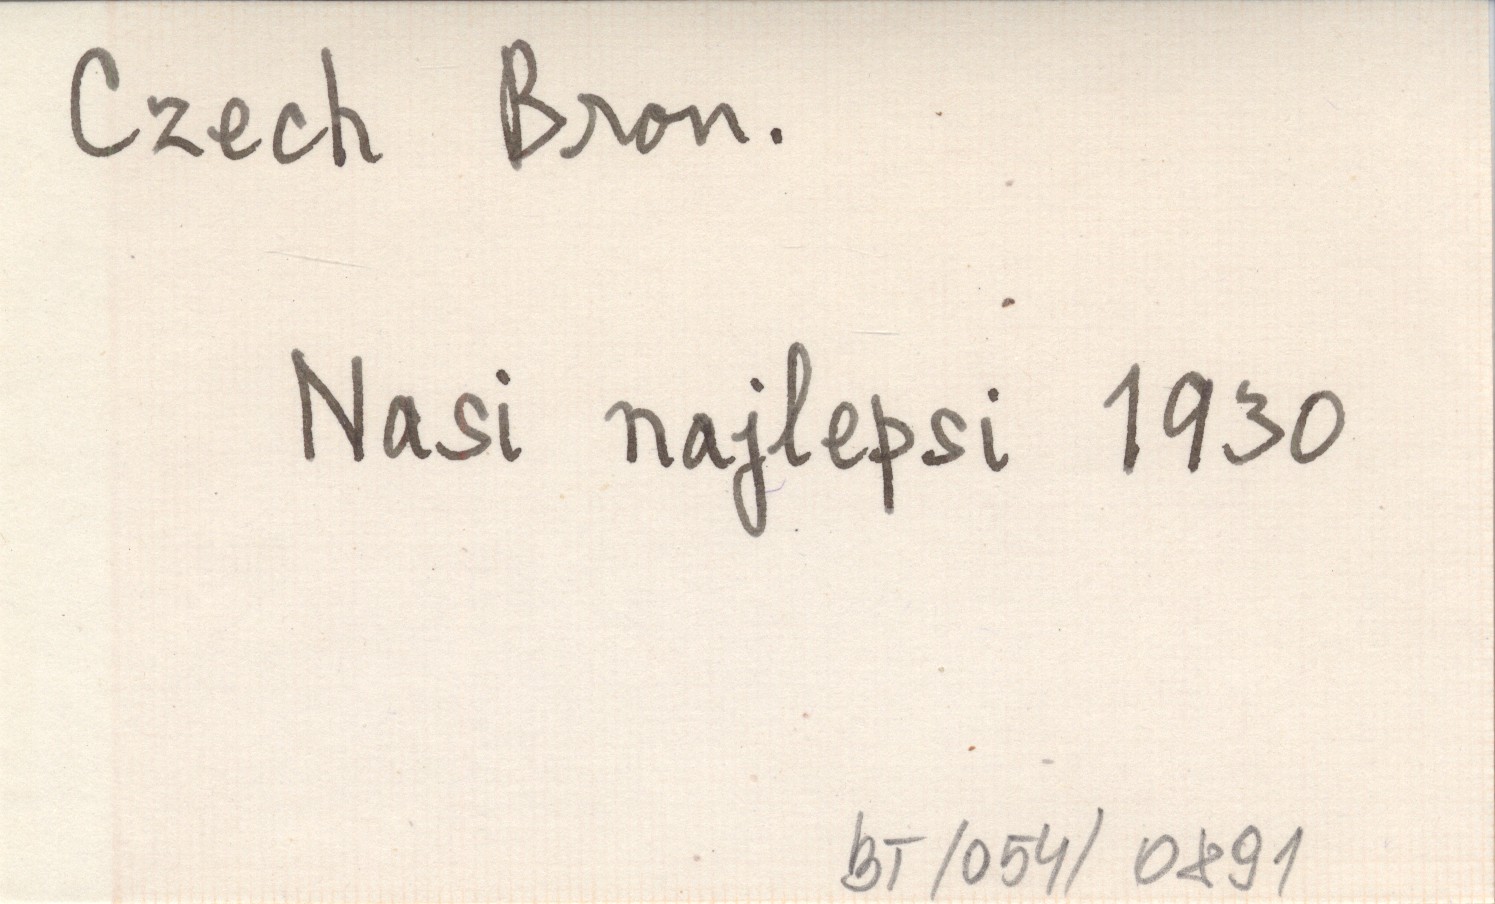 Czech Bron.
Nasi najlepsi 1930
BT/054/ 0891